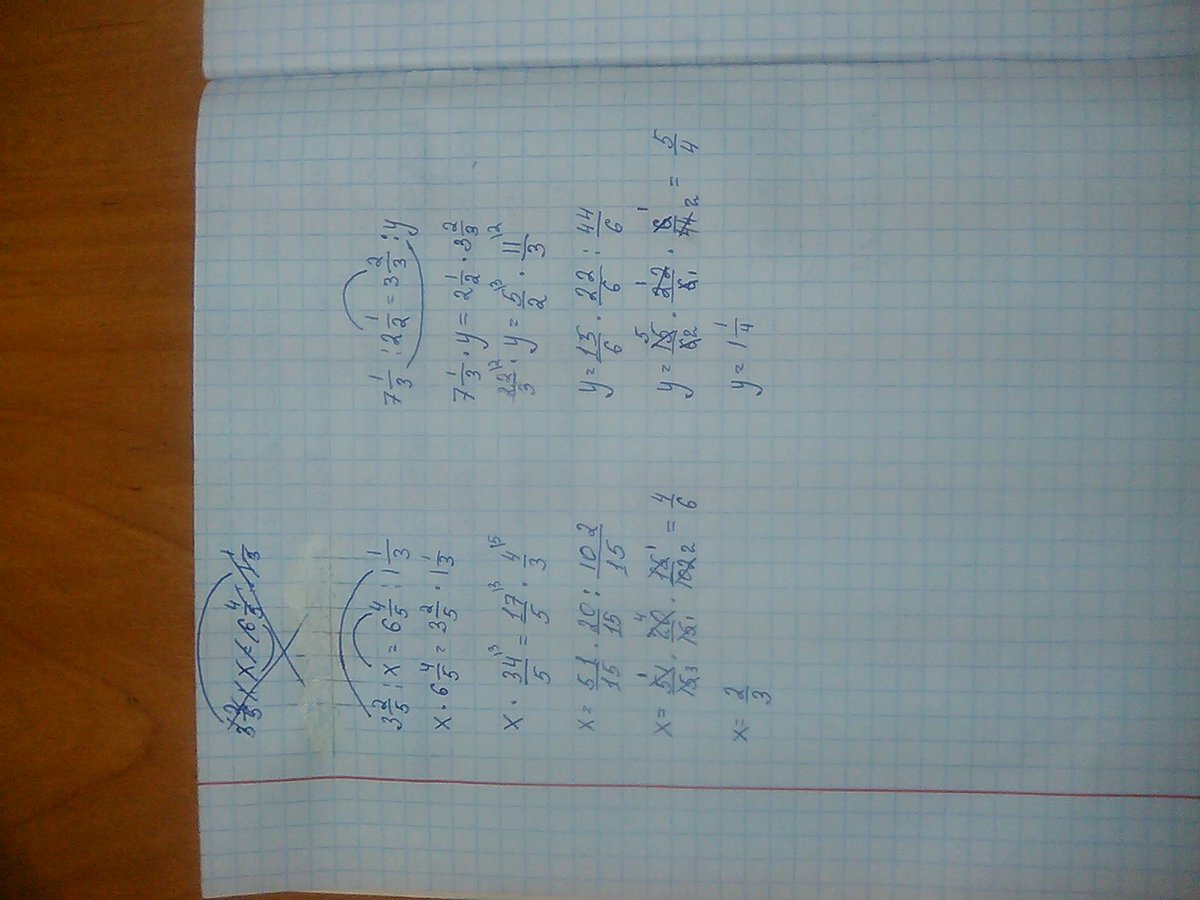 3 2/5 : x = 6 4/5 : 1 1/3
x · 6 4/5 = 3 2/5 · 1 1/3
x · 34/5 \3 = 17/5 \3 · 4/3 \5
x = 51/15 · 20/15 : 102/15
x = 51 1/15 3 · 20 4/15 1 · 15 1/102 2 = 4/6
x = 2/3
7 1/3 : 2 1/2 = 3 2/3 : y
7 1/3 · y = 2 1/2 · 3 2/3
22/3 \2 · y = 5/2 \3 · 11/3 \2
y = 15/6 · 22/6 : 44/6
y = 15 5/6 2 · 22 1/6 1 · 6 1/44 2 = 5/4
y = 1 1/4